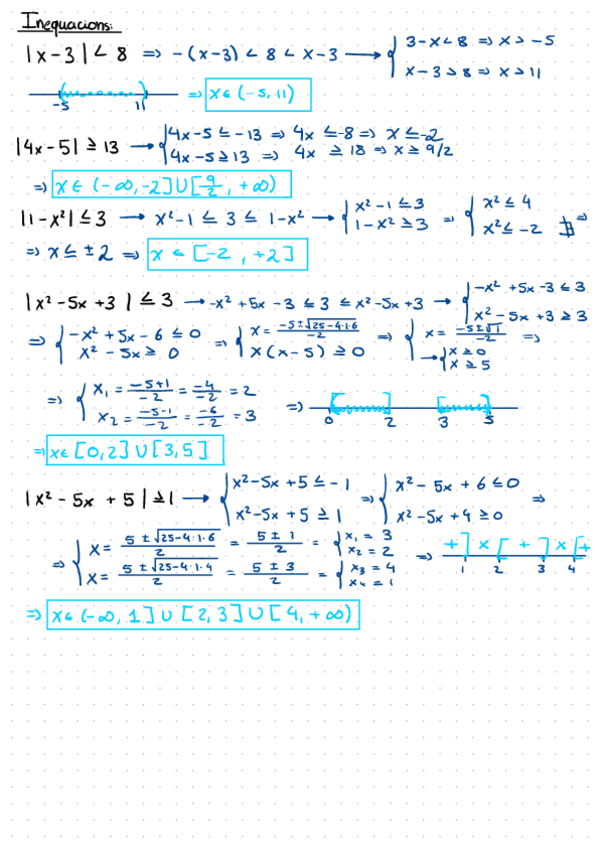 Inequacions:
|x-3| < 8 ⇒ -(x-3) < 8 < x-3 → { 3-x < 8 ⇒ x > -5
x-3 > 8 ⇒ x > 11
-5 11 ⇒ x ∈ (-5, 11)
|4x-5| ≥ 13 → { 4x-5 ≤ -13 ⇒ 4x ≤ -8 ⇒ x ≤ -2
4x-5 ≥ 13 ⇒ 4x ≥ 18 ⇒ x ≥ 9/2
⇒ x ∈ (-∞, -2] ∪ [9/2, +∞)
|1-x²| ≤ 3 → x²-1 ≤ 3 ≤ 1-x² → { x²-1 ≤ 3 ⇒ { x² ≤ 4
1-x² ≥ 3 x² ≤ -2 ∄ ⇒
⇒ x ≤ ±2 ⇒ x ∈ [-2, +2]
|x²-5x+3| ≤ 3 → -x²+5x-3 ≤ 3 ≤ x²-5x+3 → { -x²+5x-3 ≤ 3
x²-5x+3 ≥ 3
⇒ { -x²+5x-6 ≤ 0 ⇒ { x = (-5±√(25-4·1·6))/-2 ⇒ { x = (-5±√1)/-2 ⇒
x²-5x ≥ 0 x(x-5) ≥ 0 → { x ≥ 0
x ≥ 5
⇒ { x₁ = (-5+1)/-2 = -4/-2 = 2
x₂ = (-5-1)/-2 = -6/-2 = 3 ⇒ 0 2 3 5
⇒ x ∈ [0,2] ∪ [3,5]
|x²-5x+5| ≥ 1 → { x²-5x+5 ≤ -1 ⇒ { x²-5x+6 ≤ 0 ⇒
x²-5x+5 ≥ 1 x²-5x+4 ≥ 0
⇒ { x = (5±√(25-4·1·6))/2 = (5±1)/2 = { x₁ = 3
x₂ = 2 ⇒ +] × [+] × [+
x = (5±√(25-4·1·4))/2 = (5±3)/2 = { x₃ = 4
x₄ = 1 1 2 3 4
⇒ x ∈ (-∞, 1] ∪ [2,3] ∪ [4, +∞)